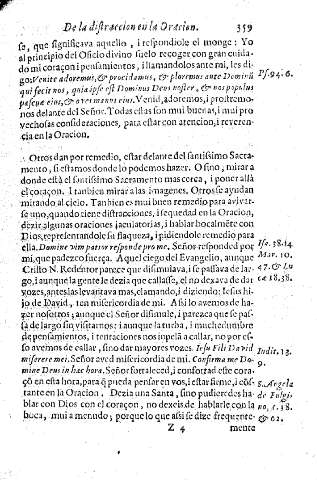 De la distraccion en la Oracion. 359
se, que significava aquello, i respondiole el monge: Yo
al principio del Oficio divino suelo recoger con gran cuida-
do mi coraçon i pensamientos, i llamandolos ante mi, les di-
gos Venite adoremus, & procidamus, & ploremus ante Dominũ Ps. 94. 6.
qui fecit nos, quia ipse est Dominus Deus noster, & nos populus
pascuæ eius, & oves manus eius. Venid, adoremos, i prostremo-
nos delante del Señor. Todas estas son mui buenas, i mui pro
vechosas consideraciones, para estar con atencion, i reveren-
cia en la Oracion.
Otros dan por remedio, estar delante del santissimo Sacra-
mento, si estamos donde lo podemos hazer. O sino, mirar a
donde està el santissimo Sacramento mas cerca, i poner allà
el coraçon. I tambien mirar a las imagenes. Otros se ayudan
mirando al cielo. Tambien es mui buen remedio para avivar-
se uno, quando tiene distracciones, i sequedad en la Oracion,
dezir algunas oraciones jaculatorias, i hablar bocalmẽte con
Dios, representandole su flaqueza, i pidiendole remedio para
ella. Domine vim patior responde pro me. Señor responded por Isa. 38. 14.
mi, que padezco fuerça. Aquel ciego del Evangelio, aunque Mar. 10.
Cristo N. Redentor parece que dissimulava, i se passava de lar- 47. & Lu
go, i aunque la gente le dezia que callasse, el no dexava de dar cæ 18. 38.
vozes, antes las levantava mas, clamando, i diziendo: Iesus hi-
jo de David, ten misericordia de mi. Assi lo avemos de ha-
zer nosotros; aunque el Señor dissimule, i parezca que se pas-
sa de largo sin visitarnos: i aunque la turba, i muchedumbre
de pensamientos, i tentaciones nos impela a callar, no por es-
so avemos de callar, sino dar mayores vozes. Iesu Fili David
miserere mei. Señor aved misericordia de mi. Confirma me Do- Iudit. 13.
mine Deus in hac hora. Señor fortaleced, i confortad este cora- 9.
çõ en esta hora, para q̃ pueda pensar en vos, i estar firme, i cõs-
tante en la Oracion. Dezia una Santa, sino pudieredes ha- S. Angela
blar con Dios con el coraçon, no dexeis de hablarle con la de Fulgi-
boca, mui a menudo; porque lo que assi se dize frequente- no, c. 38.
Z 4 mente & 62.